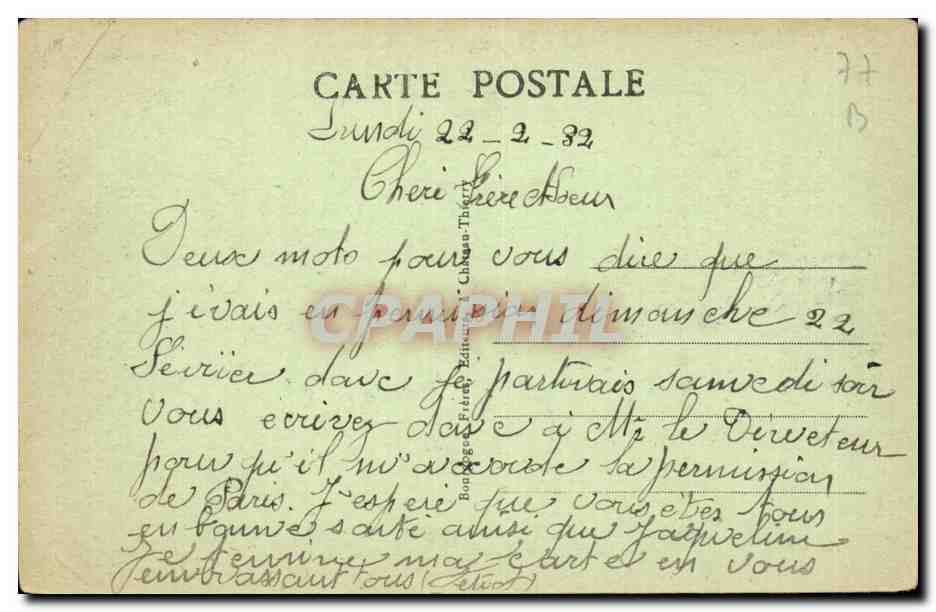 77
B
CARTE POSTALE
Lundi 22-2-32
Cheri frère et soeur
Deux moto pour vous dire que
j'évais en permission dimanche 22
Sévrier. davc je partirais samedi soir
vous ecrivez davc à Mr le Directeur
pour qu'il m'accorde la permission
de Paris. J'espere que vous êtes tous
en bonne santé ainsi que Jaqueline
Je termine ma carte en vous
embrassant tous
Bourgogne Frères, Editeurs à Château-Thierry
CPAPHIL